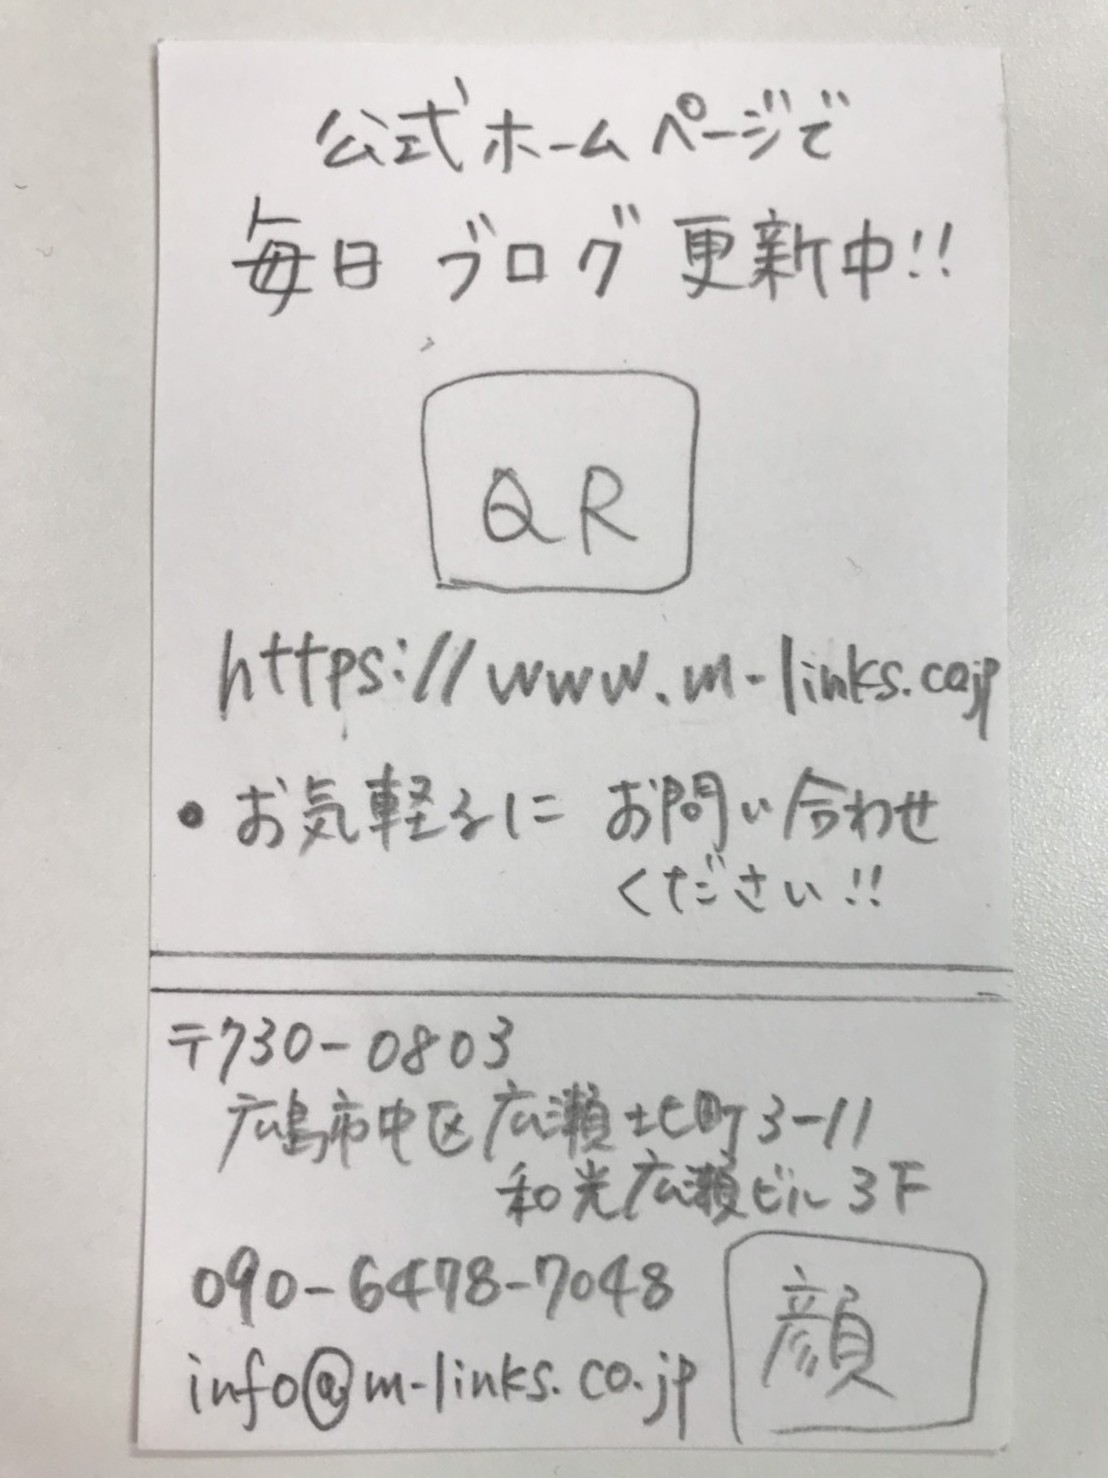 公式ホームページで
毎日 ブログ 更新中!!
QR
https://www.m-links.co.jp
• お気軽るに お問い合わせ
ください!!
〒730-0803
広島市中区広瀬北町3-11
和光広瀬ビル3F
090-6478-7048
info@m-links.co.jp
顔